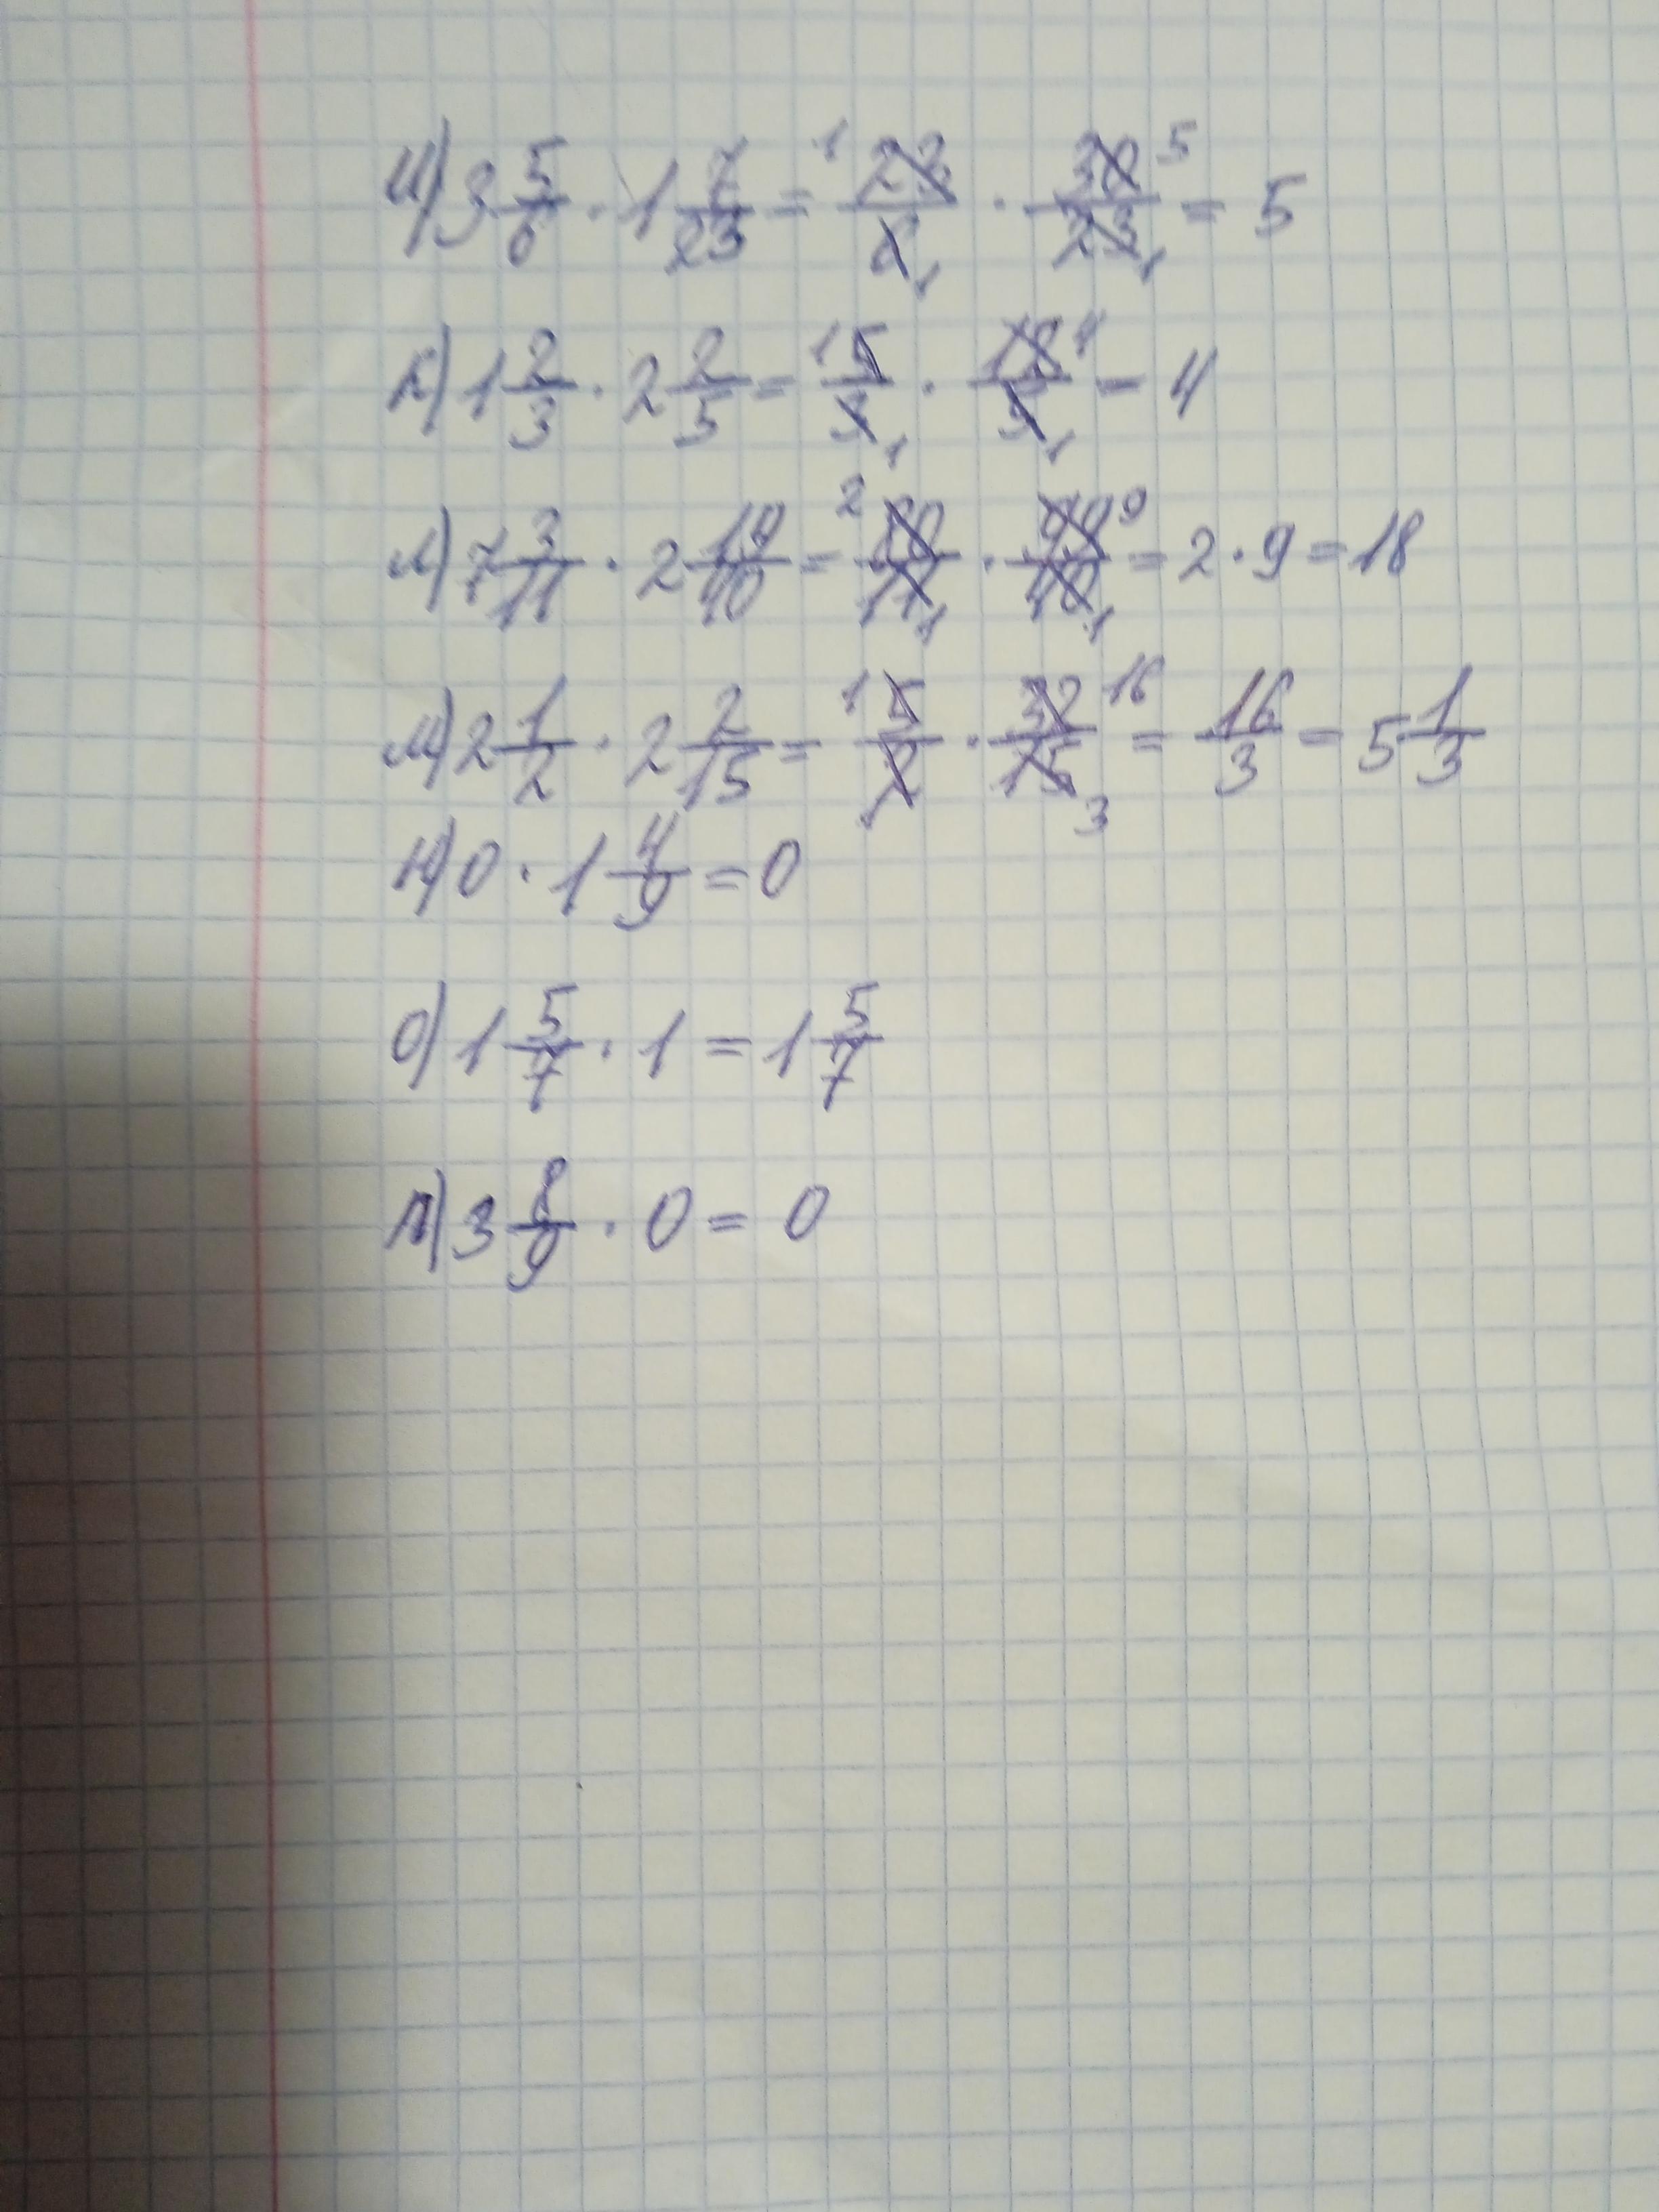 и) 3 5/6 · 1 7/23 = ¹23/6₁ · 30⁵/23₁ = 5
к) 1 2/3 · 2 2/5 = ¹5/3₁ · 12⁴/5₁ = 4
л) 7 3/11 · 2 19/40 = ²80/11₁ · 99⁹/40₁ = 2 · 9 = 18
м) 2 1/2 · 2 2/15 = ¹5/2₁ · 32¹⁶/15₃ = 16/3 = 5 1/3
н) 0 · 1 4/9 = 0
о) 1 5/7 · 1 = 1 5/7
п) 3 8/9 · 0 = 0